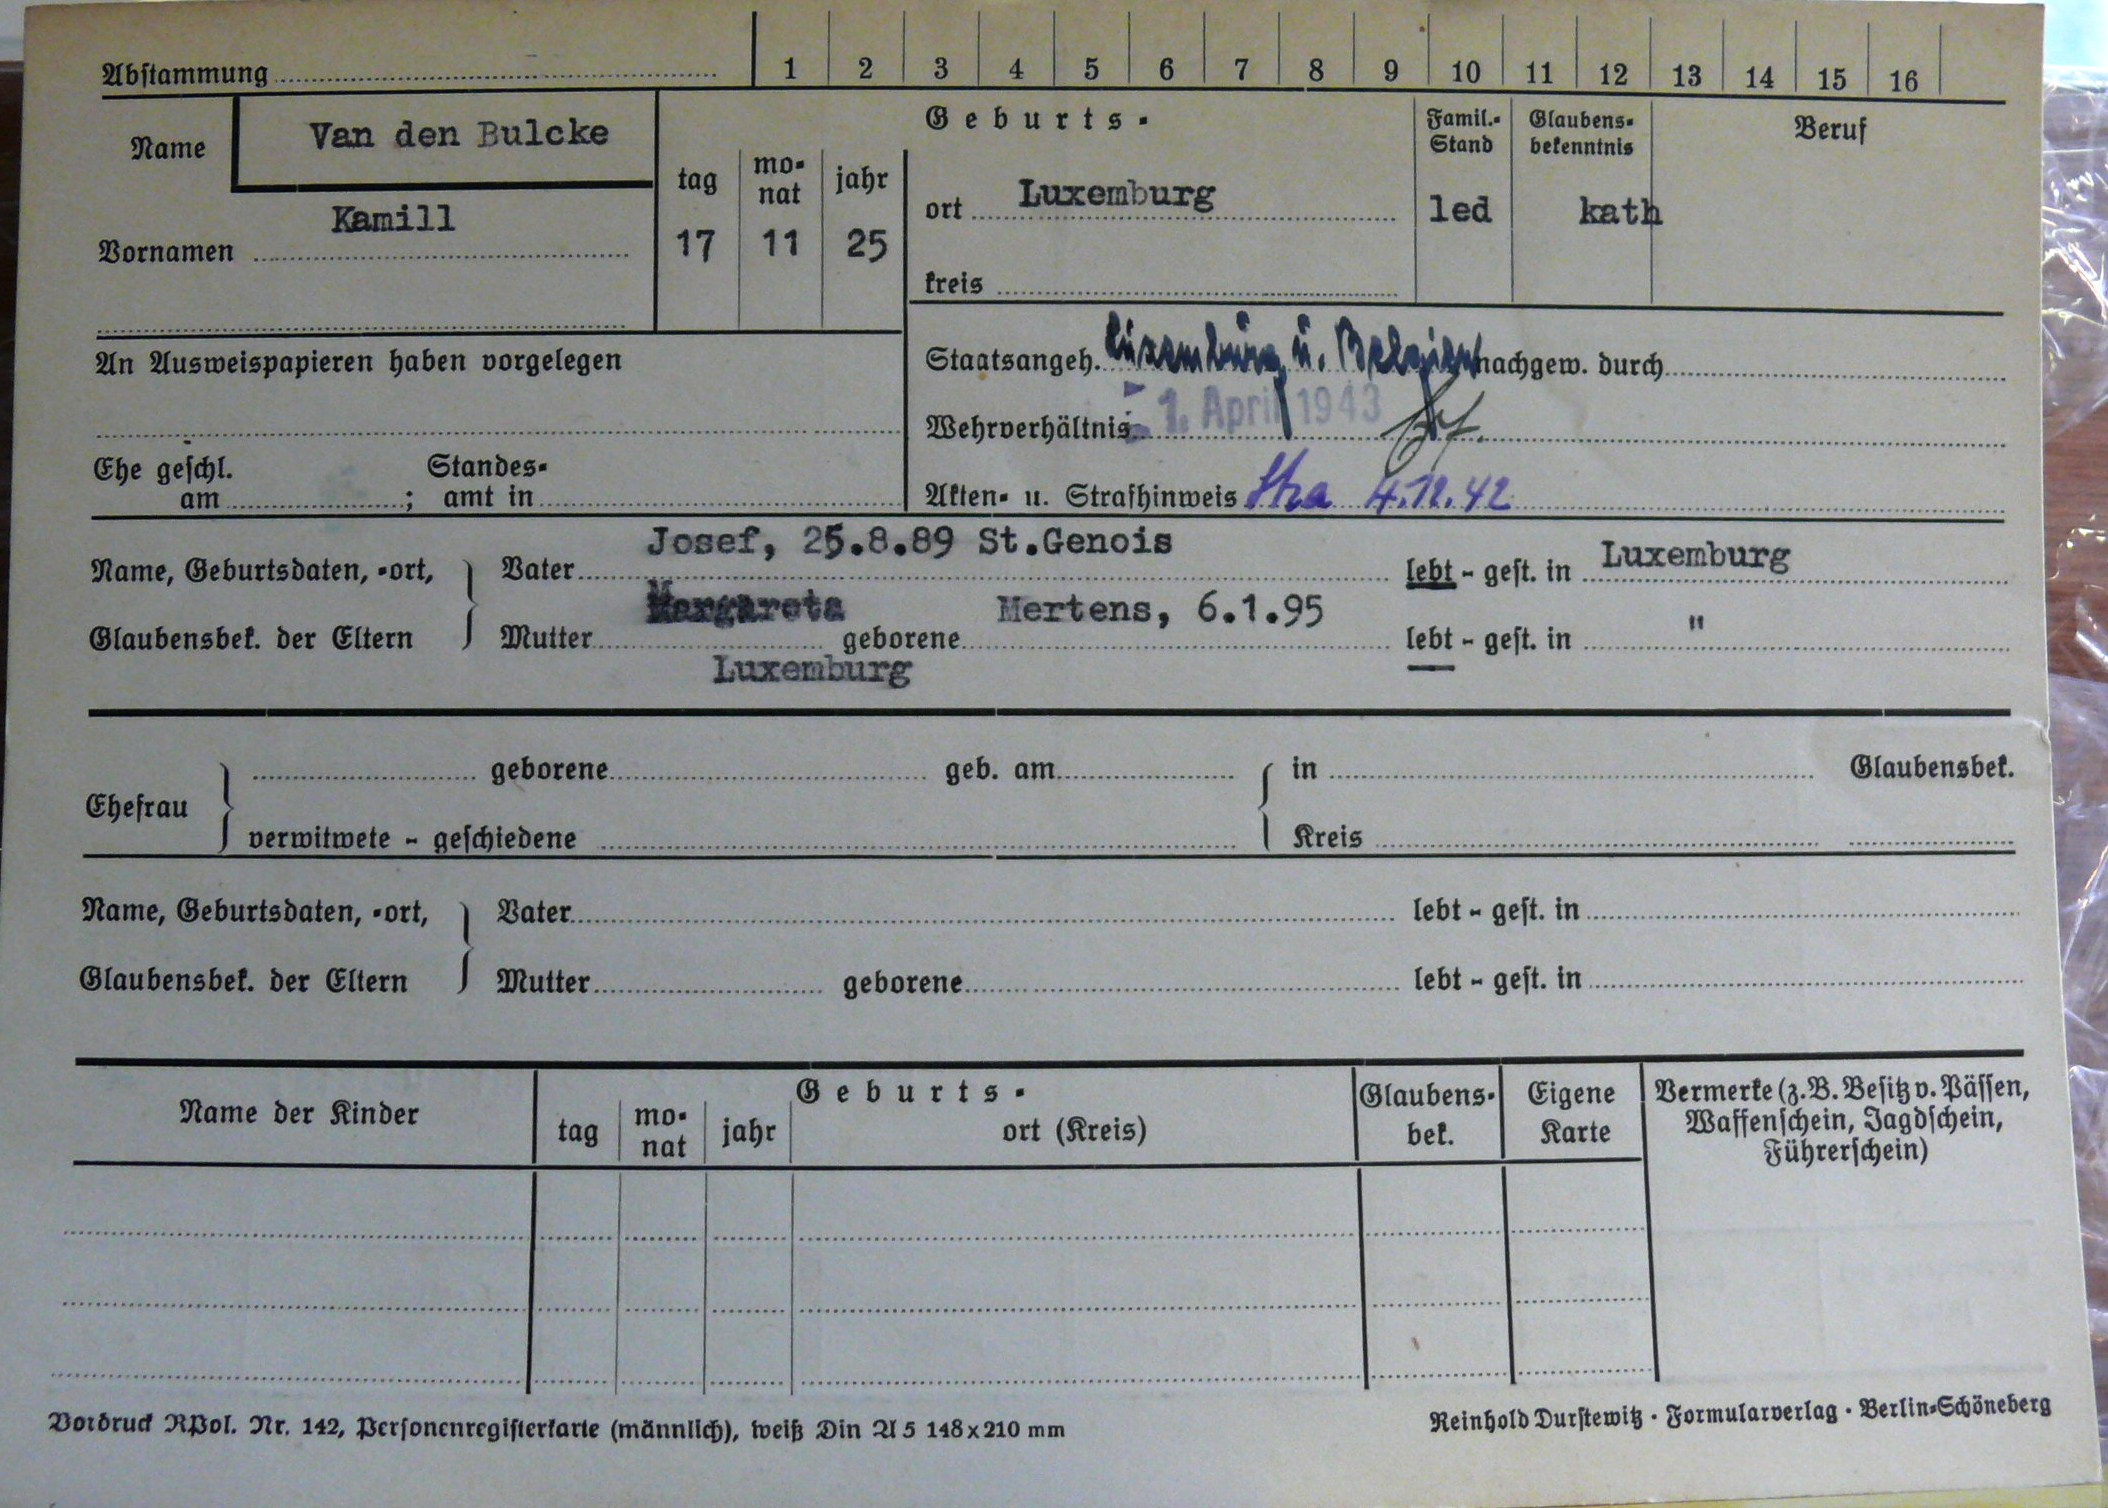 Abstammung 1 2 3 4 5 6 7 8 9 10 11 12 13 14 15 16
Name Van den Bulcke
Vornamen Kamill
Geburts-
tag monat jahr
17 11 25
ort Luxemburg
kreis
Famil.-Stand
led
Glaubensbekenntnis
kath
Beruf
An Ausweispapieren haben vorgelegen
Staatsangeh. Luxemburg u. Belgien nachgew. durch
Wehrverhältnis 1. April 1943
Ehe geschl. am ; Standesamt in
Akten- u. Strafhinweis Stra 4.12.42
Name, Geburtsdaten, -ort, Glaubensbek. der Eltern
Vater Josef, 25.8.89 St.Genois lebt - gest. in Luxemburg
Mutter Margareta geborene Mertens, 6.1.95 lebt - gest. in "
Luxemburg
Ehefrau geborene geb. am in Glaubensbek.
verwitwete - geschiedene Kreis
Name, Geburtsdaten, -ort, Glaubensbek. der Eltern
Vater lebt - gest. in
Mutter geborene lebt - gest. in
Name der Kinder
Geburts-
tag monat jahr ort (Kreis)
Glaubensbek.
Eigene Karte
Vermerke (z. B. Besitz v. Pässen,
Waffenschein, Jagdschein,
Führerschein)
Vordruck RPol. Nr. 142, Personenregisterkarte (männlich), weiß Din A 5 148 x 210 mm
Reinhold Durstewitz · Formularverlag · Berlin-Schöneberg